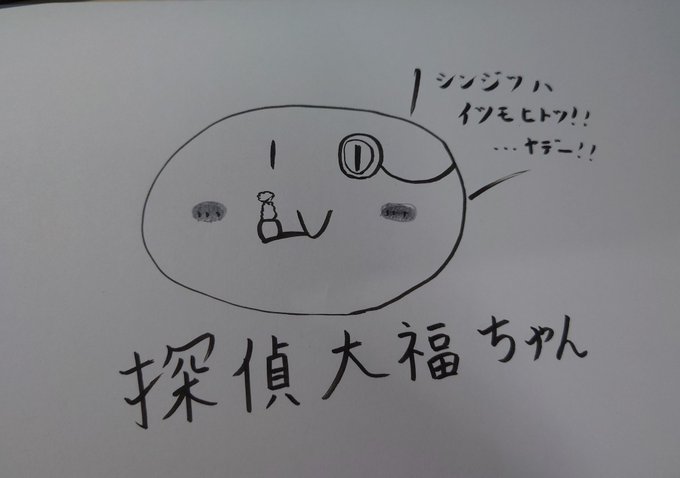 シンジツハ
イツモヒトツ!!
...ヤデー!!
探偵大福ちゃん